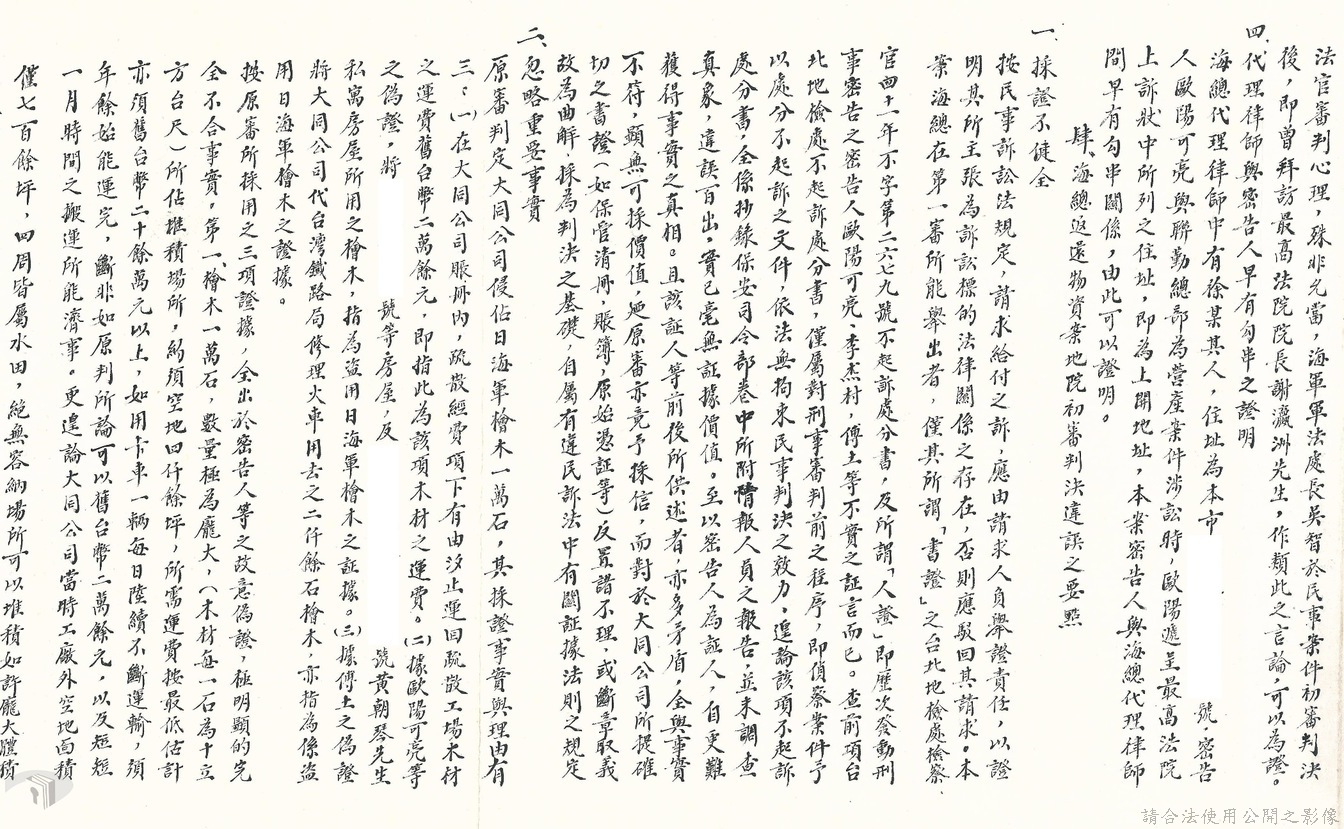 法官審判心理，殊非允當，海軍軍法處長吳智於民事案件初審判決
後，即曾拜訪最高法院院長謝瀛洲先生，作類此之言論，可以為證。
四、代理律師與密告人早有勾串之證明
海總代理律師中有徐某其人，住址為本市 號，密告
人歐陽可亮與聯勤總部為營產案件涉訟時，歐陽遞呈最高法院
上訴狀中所列之住址，即為上開地址，本案密告人與海總代理律師
間早有勾串關係，由此可以證明。
肆、海總返還物資案地院初審判決違誤之要點
一、採證不健全
按民事訴訟法規定，請求給付之訴，應由請求人負舉證責任，以證
明其所主張為訴訟標的法律關係之存在，否則應駁回其請求。本
案海總在第一審所能舉出者，僅其所謂「書證」之台北地檢處檢察
官四十一年不字第二六七九號不起訴處分書，及所謂「人證」即歷次發動刑
事密告之密告人歐陽可亮、李杰村，傅土等不實之証言而已。查前項台
北地檢處不起訴處分書，僅屬對刑事審判前之程序，即偵察案件予
以處分不起訴之文件，依法無拘束民事判決之效力，遑論該項不起訴
處分書，全係抄錄保安司令部卷中所附情報人員之報告，並未調查
真象，違誤百出，實已毫無証據價值。至以密告人為証人，自更難
獲得事實之真相。且該証人等前後所供述者，亦多矛盾，全與事實
不符，顯無可採價值，廼原審亦竟予採信，而對於大同公司所提確
切之書證（如保管清冊，賬簿，原始憑証等）反置諸不理，或斷章取義
故為曲解，採為判決之基礎，自屬有違民訴法中有關証據法則之規定
二、忽略重要事實
原審判定大同公司侵佔日海軍檜木一萬石，其採證事實與理由有
三：（一）在大同公司賬冊內，疏散經費項下有由汐止運回疏散工場木材
之運費舊台幣二萬餘元，即指此為該項木材之運費。（二）據歐陽可亮等
之偽證，將 號等房屋，反 號黃朝琴先生
私寓房屋所用之檜木，指為盜用日海軍檜木之証據。（三）據傅土之偽證
將大同公司代台灣鐵路局修理火車用去之二仟餘石檜木，亦指為係盜
用日海軍檜木之證據。
按原審所採用之三項證據，全出於密告人等之故意偽證，極明顯的完
全不合事實。第一、檜木一萬石，數量極為龐大，（木材每一石為十立
方台尺）所佔堆積場所，約須空地四仟餘坪，所需運費按最低估計
亦須舊台幣二十餘萬元以上，如用卡車一輛每日陸續不斷運輸，須
年餘始能運完，斷非如原判所論可以舊台幣二萬餘元，以及短短
一月時間之搬運所能濟事。更遑論大同公司當時工廠外空地面積
僅七百餘坪，四周皆屬水田，絕無容納場所可以堆積如許龐大體積
請合法使用公開之影像